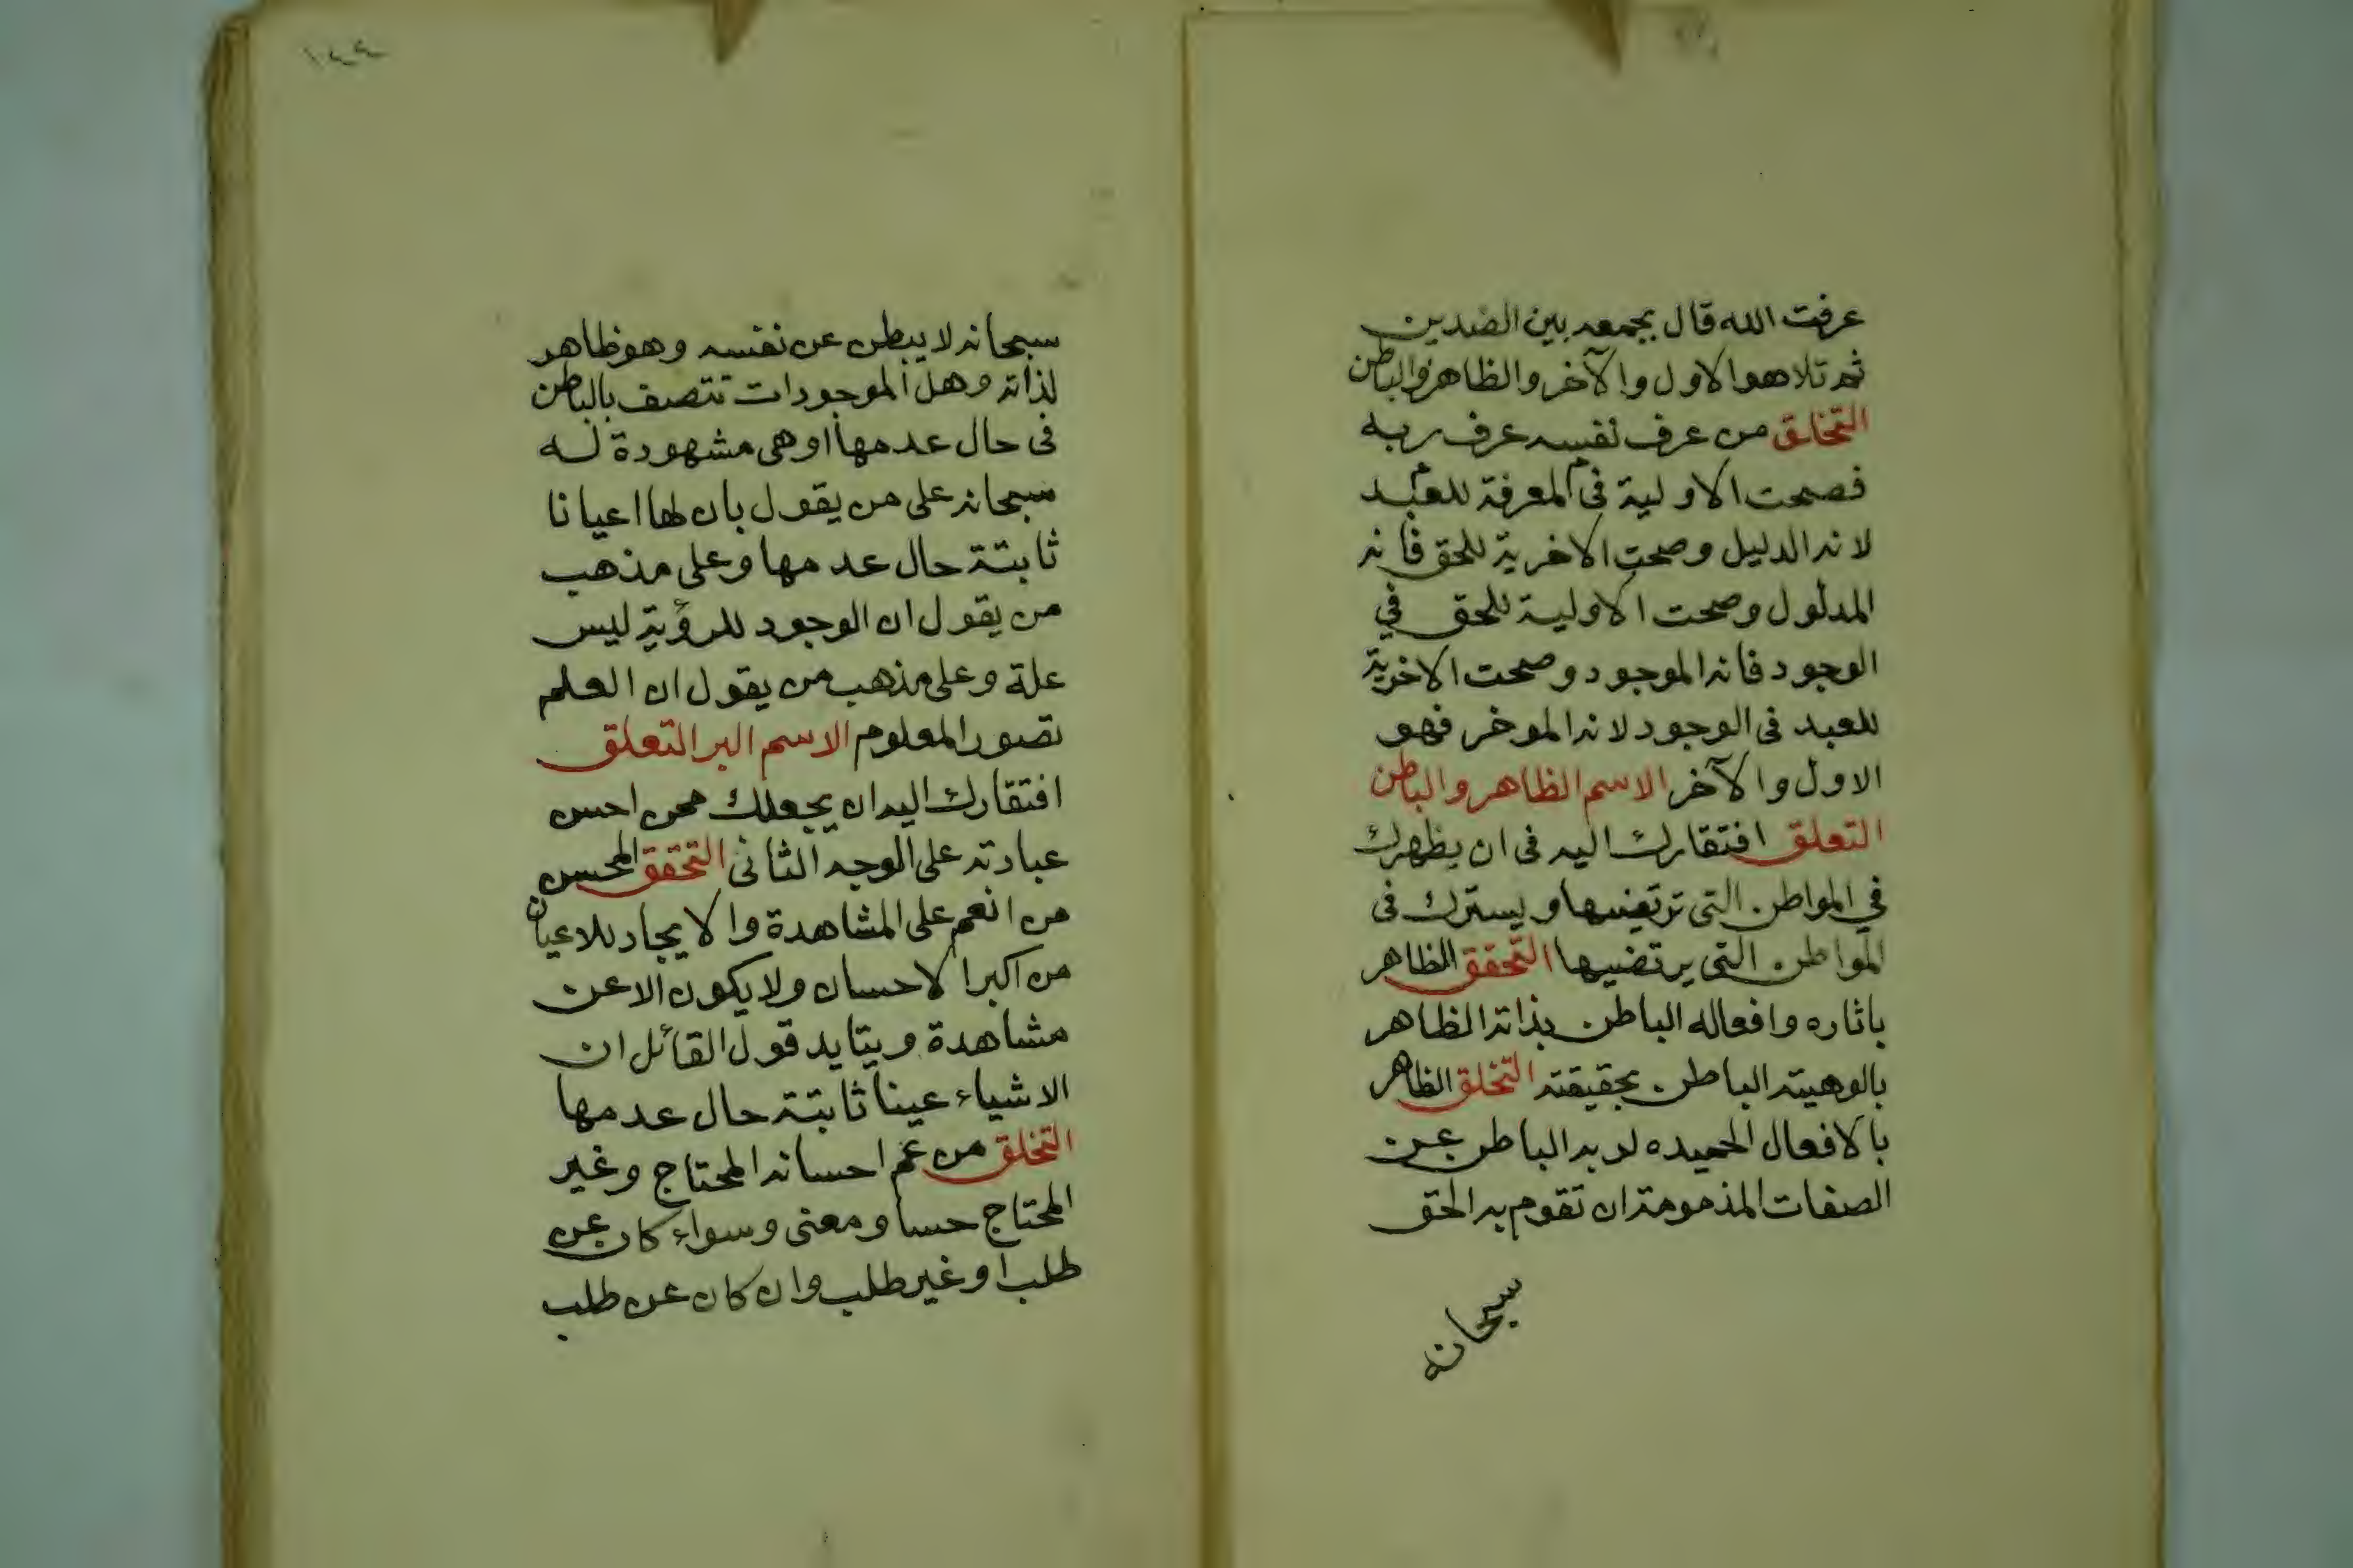 عرفت الله قال بجمعه بين الضدين
ثم تلا هو الاول والآخر والظاهر والباطن
التخلق من عرف نفسه عرف ربه
فصحت الاولية في المعرفة للعبد
لانه الدليل وصحت الاخرية للحق فانه
المدلول وصحت الاولية للحق في
الوجود فانه الموجود وصحت الاخرية
للعبد في الوجود لانه الموخر فهو
الاول والآخر الاسم الظاهر والباطن
التعلق افتقارك اليه في ان يظهرك
في المواطن التي ترتضيها ويسترك في
المواطن التي يرتضيها التحقق الظاهر
باثاره وافعاله الباطن بذاته الظاهر
بالوهيته الباطن بحقيقته التخلق الظاهر
بالافعال الحميده لربه الباطن عن
الصفات المذمومة ان تقوم به الحق
سبحانه
١٤٤
سبحانه لا يبطن عن نفسه وهو ظاهر
لذاته وهل الموجودات تتصف بالباطن
في حال عدمها او هي مشهودة له
سبحانه على من يقول بان لها اعيانا
ثابتة حال عدمها وعلى مذهب
من يقول ان الوجود للرؤية ليس
علة وعلى مذهب من يقول ان العلم
تصور المعلوم الاسم البر التعلق
افتقارك اليه ان يجعلك ممن احسن
عبادته على الوجه الثاني التحقق المحسن
من انعم على المشاهدة والايجاد للاعيان
من اكبر الاحسان ولا يكون الا عن
مشاهدة ويتايد قول القائل ان
الاشياء عينا ثابتة حال عدمها
التخلق من عم احسانه المحتاج وغير
المحتاج حسا ومعنى وسواء كان عن
طلب او غير طلب وان كان عن طلب